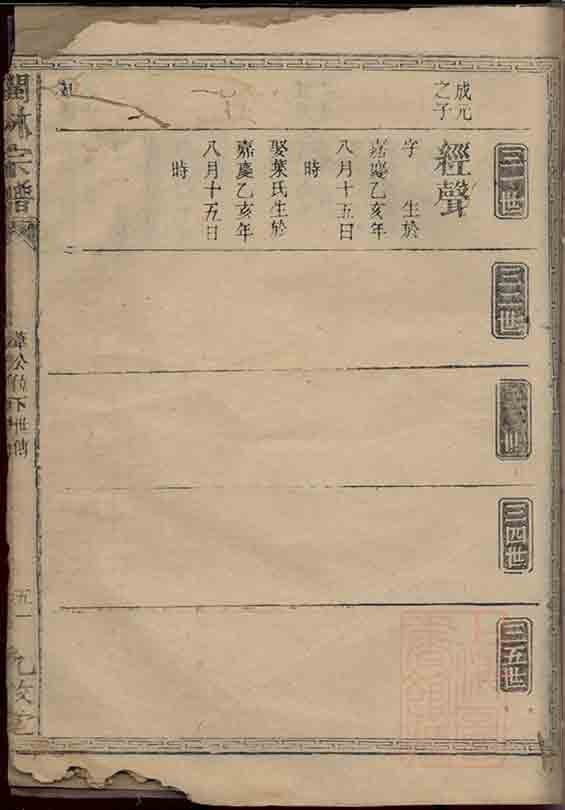 三一世
成元
之子
經聲
字　生於
嘉慶乙亥年
八月十五日
時
娶葉氏生於
嘉慶乙亥年
八月十五日
時
三二世
三三世
三四世
三五世
宗譜
公竹下世傳
五一
九牧堂